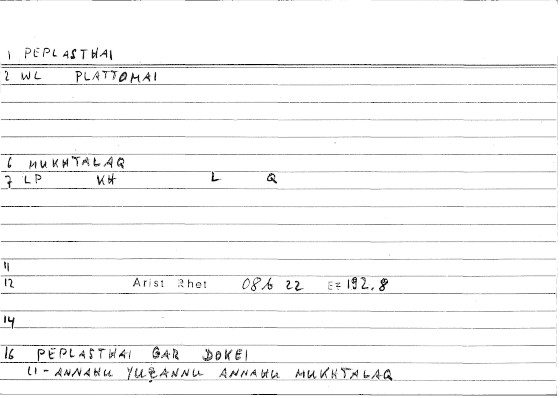 1 PEPLASTHAI
2 WL PLATTOMAI
6 MUKHTALAQ
7 LP KH L Q
11
12 Arist Rhet 08b 22 Ez 192,8
14
16 PEPLASTHAI GAR DOKEI
LI-ANNAHU YUẒANNU ANNAHU MUKHTALAQ